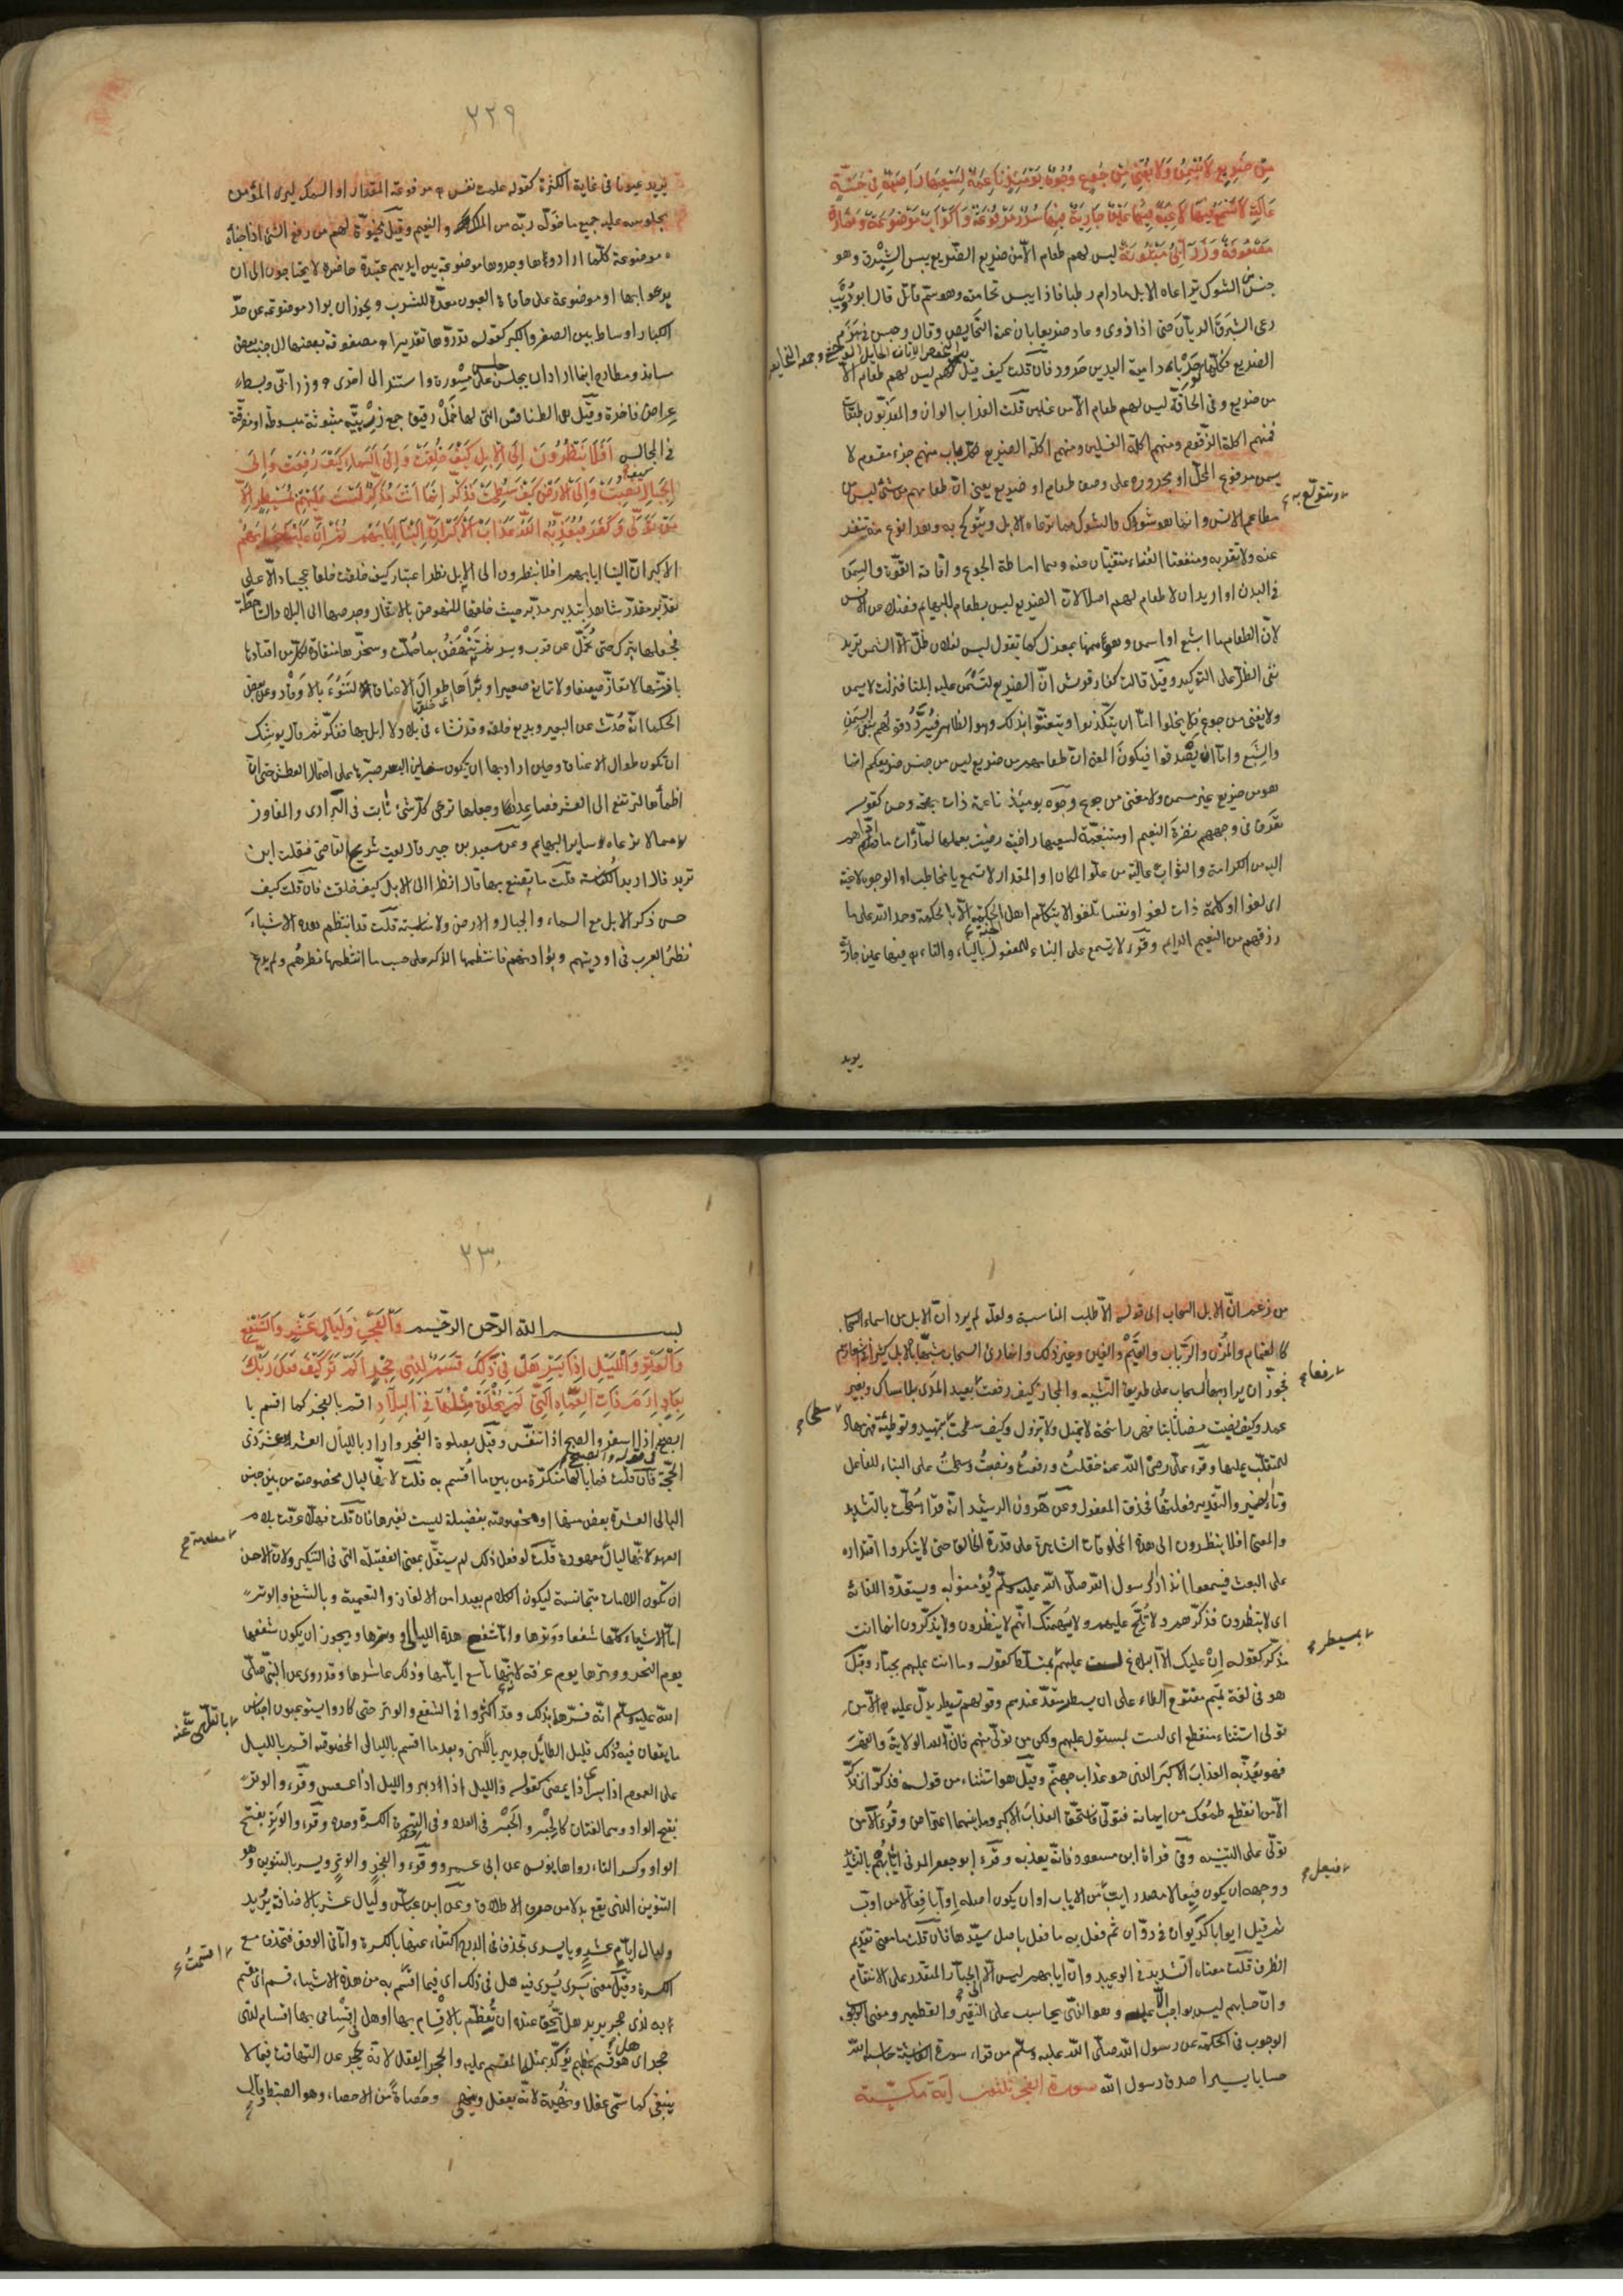 من ضريع لا يسمن ولا يغني من جوع وجوه يومئذ ناعمة لسعيها راضية في جنة
عالية لا تسمع فيها لاغية فيها عين جارية فيها سرر مرفوعة واكواب موضوعة ونمارق
مصفوفة وزرابي مبثوثة ليس لهم طعام الا من ضريع الضريع يبس الشبرق وهو
جنس من الشوك ترعاه الابل مادام رطبا فاذا يبس تحامته وهو سم قاتل قال ابو ذؤيب
رعى الشبرق الريان حتى اذا ذوى وعاد ضريعا بان عنه النحايص وقال وحبس في هزم
الضريع فكلها حدباء دامية اليدين حرود فان قلت كيف قيل ليس لهم طعام الا
من ضريع وفي الحاقة ليس لهم طعام الا من غسلين قلت العذاب الوان والمعذبون طبقات
فمنهم اكلة الزقوم ومنهم اكلة الغسلين ومنهم اكلة الضريع لكل باب منهم جزء مقسوم لا
يسمن مرفوع المحل او مجروره على وصف طعام او ضريع يعني ان طعامهم من شئ ليس من
مطاعم الانس وانما هو شوك والشوك مما ترعاه الابل وتتولع به وهذا نوع منه تنفر
عنه ولا تقربه ومنفعتا الغذاء منتفيتان عنه وهما اماطة الجوع وافادة القوة والسمن
في البدن او اريد ان لا طعام لهم اصلا لان الضريع ليس بطعام للبهايم فضلا عن الانس
لان الطعام ما اشبع او اسمن وهو منهما بمعزل كما تقول ليس لفلان ظل الا الشمس تريد
نفي الظل على التوكيد وقيل قالت كفار قريش ان الضريع لتسمن عليه ابلنا فنزلت لا يسمن
ولا يغني من جوع فلا يخلوا اما ان يتكذبوا ويتعنتوا بذلك وهو الظاهر فيرد قولهم بنفي السمن
والشبع واما ان يصدقوا فيكون المعنى ان طعامهم من ضريع ليس من جنس ضريعكم انما
هو من ضريع غير مسمن ولا مغن من جوع وجوه يومئذ ناعمة ذات بهجة وحسن كقوله
تعرف في وجوههم نضرة النعيم او متنعمة لسعيها راضية رضيت بعملها لما رات ما اداهم
اليه من الكرامة والثواب عالية من علو المكان او المقدار لا تسمع يا مخاطب او الوجوه لاغية
اي لغوا او كلمة ذات لغو او نفسا تلغو لا يتكلم اهل الجنة الا بالحكمة وحمد الله على ما
رزقهم من النعيم الدايم وقرئ لا تسمع على البناء للمفعول بالياء والتاء فيها عين جارية
وتتولع به
يريد
٢٢٩
يريد عيونا في غاية الكثرة كقوله علمت نفس مرفوعة المقدار او السمك ليرى المؤمن
بجلوسه عليه جميع ما خوله ربه من الملك والنعيم وقيل مخبوءة لهم من رفع الشئ اذا خباه
موضوعة كلما ارادوها وجدوها موضوعة بين ايديهم عتيدة حاضرة لا يحتاجون الى ان
يدعوا بها او موضوعة على حافات العيون معدة للشرب ويجوز ان يراد موضوعة عن حد
الكبار اوساط بين الصغر والكبر كقوله قدروها تقديرا مصفوفة بعضها الى جنب بعض
مساند ومطارح اينما اراد ان يجلس جلس على مسورة واستند الى اخرى وزرابي وبسط
عراض فاخرة وقيل هي الطنافس التي لها خمل رقيق جمع زربية مبثوثة مبسوطة او مفرقة
في المجالس افلا ينظرون الى الابل كيف خلقت والى السماء كيف رفعت والى
الجبال كيف نصبت والى الارض كيف سطحت فذكر انما انت مذكر لست عليهم بمسيطر الا
من تولى وكفر فيعذبه الله العذاب الاكبر ان الينا ايابهم ثم ان علينا حسابهم
الاكبر ان الينا ايابهم افلا ينظرون الى الابل نظر اعتبار كيف خلقت خلقا عجيبا دالا على
تقدير مقدر شاهدا بتدبير مدبر حيث خلقها للنهوض بالاثقال وجرها الى البلاد الشاحطة
فجعلها تبرك حتى تحمل عن قرب ويسر ثم تنهض بما حملت وسخرها منقادة لكل من اقتادها
بازمتها لا تعاز ضعيفا ولا تمانع صغيرا وبراها طوال الاعناق لتنوء بالاوقار وعن بعض
الحكماء انه حدث عن البعير وبديع خلقه وقد نشاء في بلاد لا ابل بها ففكر ثم قال يوشك
ان تكون طوال الاعناق وحين اراد بها ان تكون سفاين البر صبرها على احتمال العطش حتى ان
اظماءها لترتفع الى العشر فصاعدا وجعلها ترعى كل شئ نابت في البراري والمفاوز
مما لا يرعاه ساير البهايم وعن سعيد بن جبير قال لقيت شريح القاضي فقلت اين
تريد قال اريد الكناسة قلت ما تصنع بها قال انظر الى الابل كيف خلقت فان قلت كيف
حسن ذكر الابل مع السماء والجبال والارض ولا مناسبة قلت قد انتظم هذه الاشياء
نظر العرب في اوديتهم وبواديهم فانتظمها الذكر على حسب ما انتظمها نظرهم ولم يدع
من زعم ان الابل السحاب الى قوله الا طلب المناسبة ولعله لم يرد ان الابل من اسماء السحاب
كالغمام والمزن والرباب والغيم والغين وغير ذلك وانما راى السحاب مشبها بالابل كثيرا في اشعارهم
فجوز ان يراد بها السحاب على طريق التشبيه والمجاز كيف رفعت بعيد المدى بلا مساك وبغير
عمد وكيف نصبت نصبا ثابتا فهي راسخة لا تميل ولا تزول وكيف سطحت بتمهيد وتوطئة فهي مهاد
للمتقلب عليها وقرء علي رضي الله عنه خلقت ورفعت ونصبت وسطحت على البناء للفاعل
وتاء الضمير والتقدير فعلتها فحذف المفعول وعن هرون الرشيد انه قرا سطحت بالتشديد
والمعنى افلا ينظرون الى هذه المخلوقات الشاهدة على قدرة الخالق حتى لا ينكروا اقتداره
على البعث فيسمعوا انذار الرسول صلى الله عليه وسلم ويؤمنوا به ويستعدوا للقائه
اي لا ينظرون فذكرهم ولا تلح عليهم ولا يهمنك انهم لا ينظرون ولا يذكرون انما انت
مذكر كقوله ان عليك الا البلاغ لست عليهم بمتسلط كقوله وما انت عليهم بجبار وقيل
هو في لغة تميم مفتوح الطاء على ان سيطر متعد عندهم وقولهم تسيطر يدل عليه الا من
تولى استثناء منقطع اي لست بمستول عليهم ولكن من تولى منهم فان لله الولاية والقهر
فهو يعذبه العذاب الاكبر الذي هو عذاب جهنم وقيل هو استثناء من قوله فذكر اي فذكر
الا من انقطع طمعك من ايمانه فتولى فاستحق العذاب الاكبر وما بينهما اعتراض وقرئ الا من
تولى على التنبيه وفي قراءة ابن مسعود فانه يعذبه وقرء ابو جعفر المدني ايابهم بالتشديد
ووجهه ان يكون فيعالا مصدر ايب من الاياب او ان يكون اصله اوابا فعالا من اوب
ثم قيل ايوابا كديوان في دوان ثم فعل به ما فعل باصل سيد فان قلت ما معنى تقديم
الظرف قلت معناه التشديد في الوعيد وان ايابهم ليس الا الى الجبار المقتدر على الانتقام
وان حسابهم ليس بواجب الا عليه وهو الذي يحاسب على النقير والقطمير ومعنى الوجوب
الوجوب في الحكمة عن رسول الله صلى الله عليه وسلم من قراء سورة الغاشية حاسبه الله
حسابا يسيرا صدق رسول الله سورة الفجر ثلثون اية مكية
رفعا
بمسيطر
فيعل
٢٣٠
بسم الله الرحمن الرحيم والفجر وليال عشر والشفع
والوتر والليل اذا يسر هل في ذلك قسم لذي حجر الم تر كيف فعل ربك
بعاد ارم ذات العماد التي لم يخلق مثلها في البلاد اقسم بالفجر كما اقسم با
لصبح في قوله والصبح اذا اسفر والصبح اذا تنفس وقيل بصلوة الفجر واراد بالليالي العشر عشر ذي
الحجة فان قلت فما بالها منكرة من بين ما اقسم به قلت لانها ليال مخصوصة من بين جنس
الليالي العشر بعض منها او مخصوصة بفضيلة ليست لغيرها فان قلت فهلا عرفت بلام
العهد لانها ليال معلومة معهودة قلت لو فعل ذلك لم يستقل بمعنى الفضيلة التي في التنكير ولان الاحسن
ان تكون اللامات متجانسة ليكون الكلام ابعد من الالغاز والتعمية وبالشفع والوتر
اما الاشياء كلها شفعها ووترها واما شفع هذه الليالي ووترها ويجوز ان يكون شفعها
يوم النحر ووترها يوم عرفة لانه تاسع ايامها وذاك عاشرها وقد روي عن النبي صلى
الله عليه وسلم انه فسرهما بذلك وقد اكثروا في الشفع والوتر حتى كادوا يستوعبون اجناس
ما يقعان فيه وذلك قليل الطائل جدير بالتلهي عنه وبعد ما اقسم بالليالي المخصوصة اقسم بالليل
على العموم اذا يسر اذا يمضي كقوله والليل اذا ادبر والليل اذا عسعس وقرء والوتر
بفتح الواو وهما لغتان كالحبر والحبر في العدد وفي الترة الكسر وحده وقرء والوتر بفتح
الواو وكسر التاء رواها يونس عن ابي عمرو وقرء والفجر والوتر ويسر بالتنوين وهو
التنوين الذي يقع بدلا من حرف الاطلاق وعن ابن عباس وليال عشر بالاضافة يريد
وليال ايام عشر وياء يسري تحذف في الدرج اكتفاء عنها بالكسرة واما في الوقف فتحذف مع
الكسرة وقيل معنى يسري يسرى فيه هل في ذلك اي فيما اقسمت به من هذه الاشياء قسم اي مقسم
به لذي حجر يريد هل يحق عنده ان تعظم بالاقسام بها او هل في اقسامي بها اقسام لذي
حجر اي هل هو قسم عظيم يؤكد بمثله المقسم عليه والحجر العقل لانه يحجر عن التهافت فيما لا
ينبغي كما سمي عقلا ونهية لانه يعقل وينهى وحصاة من الاحصاء وهو الضبط وقال
معلومة
بالتلهي عنه
اقسمت